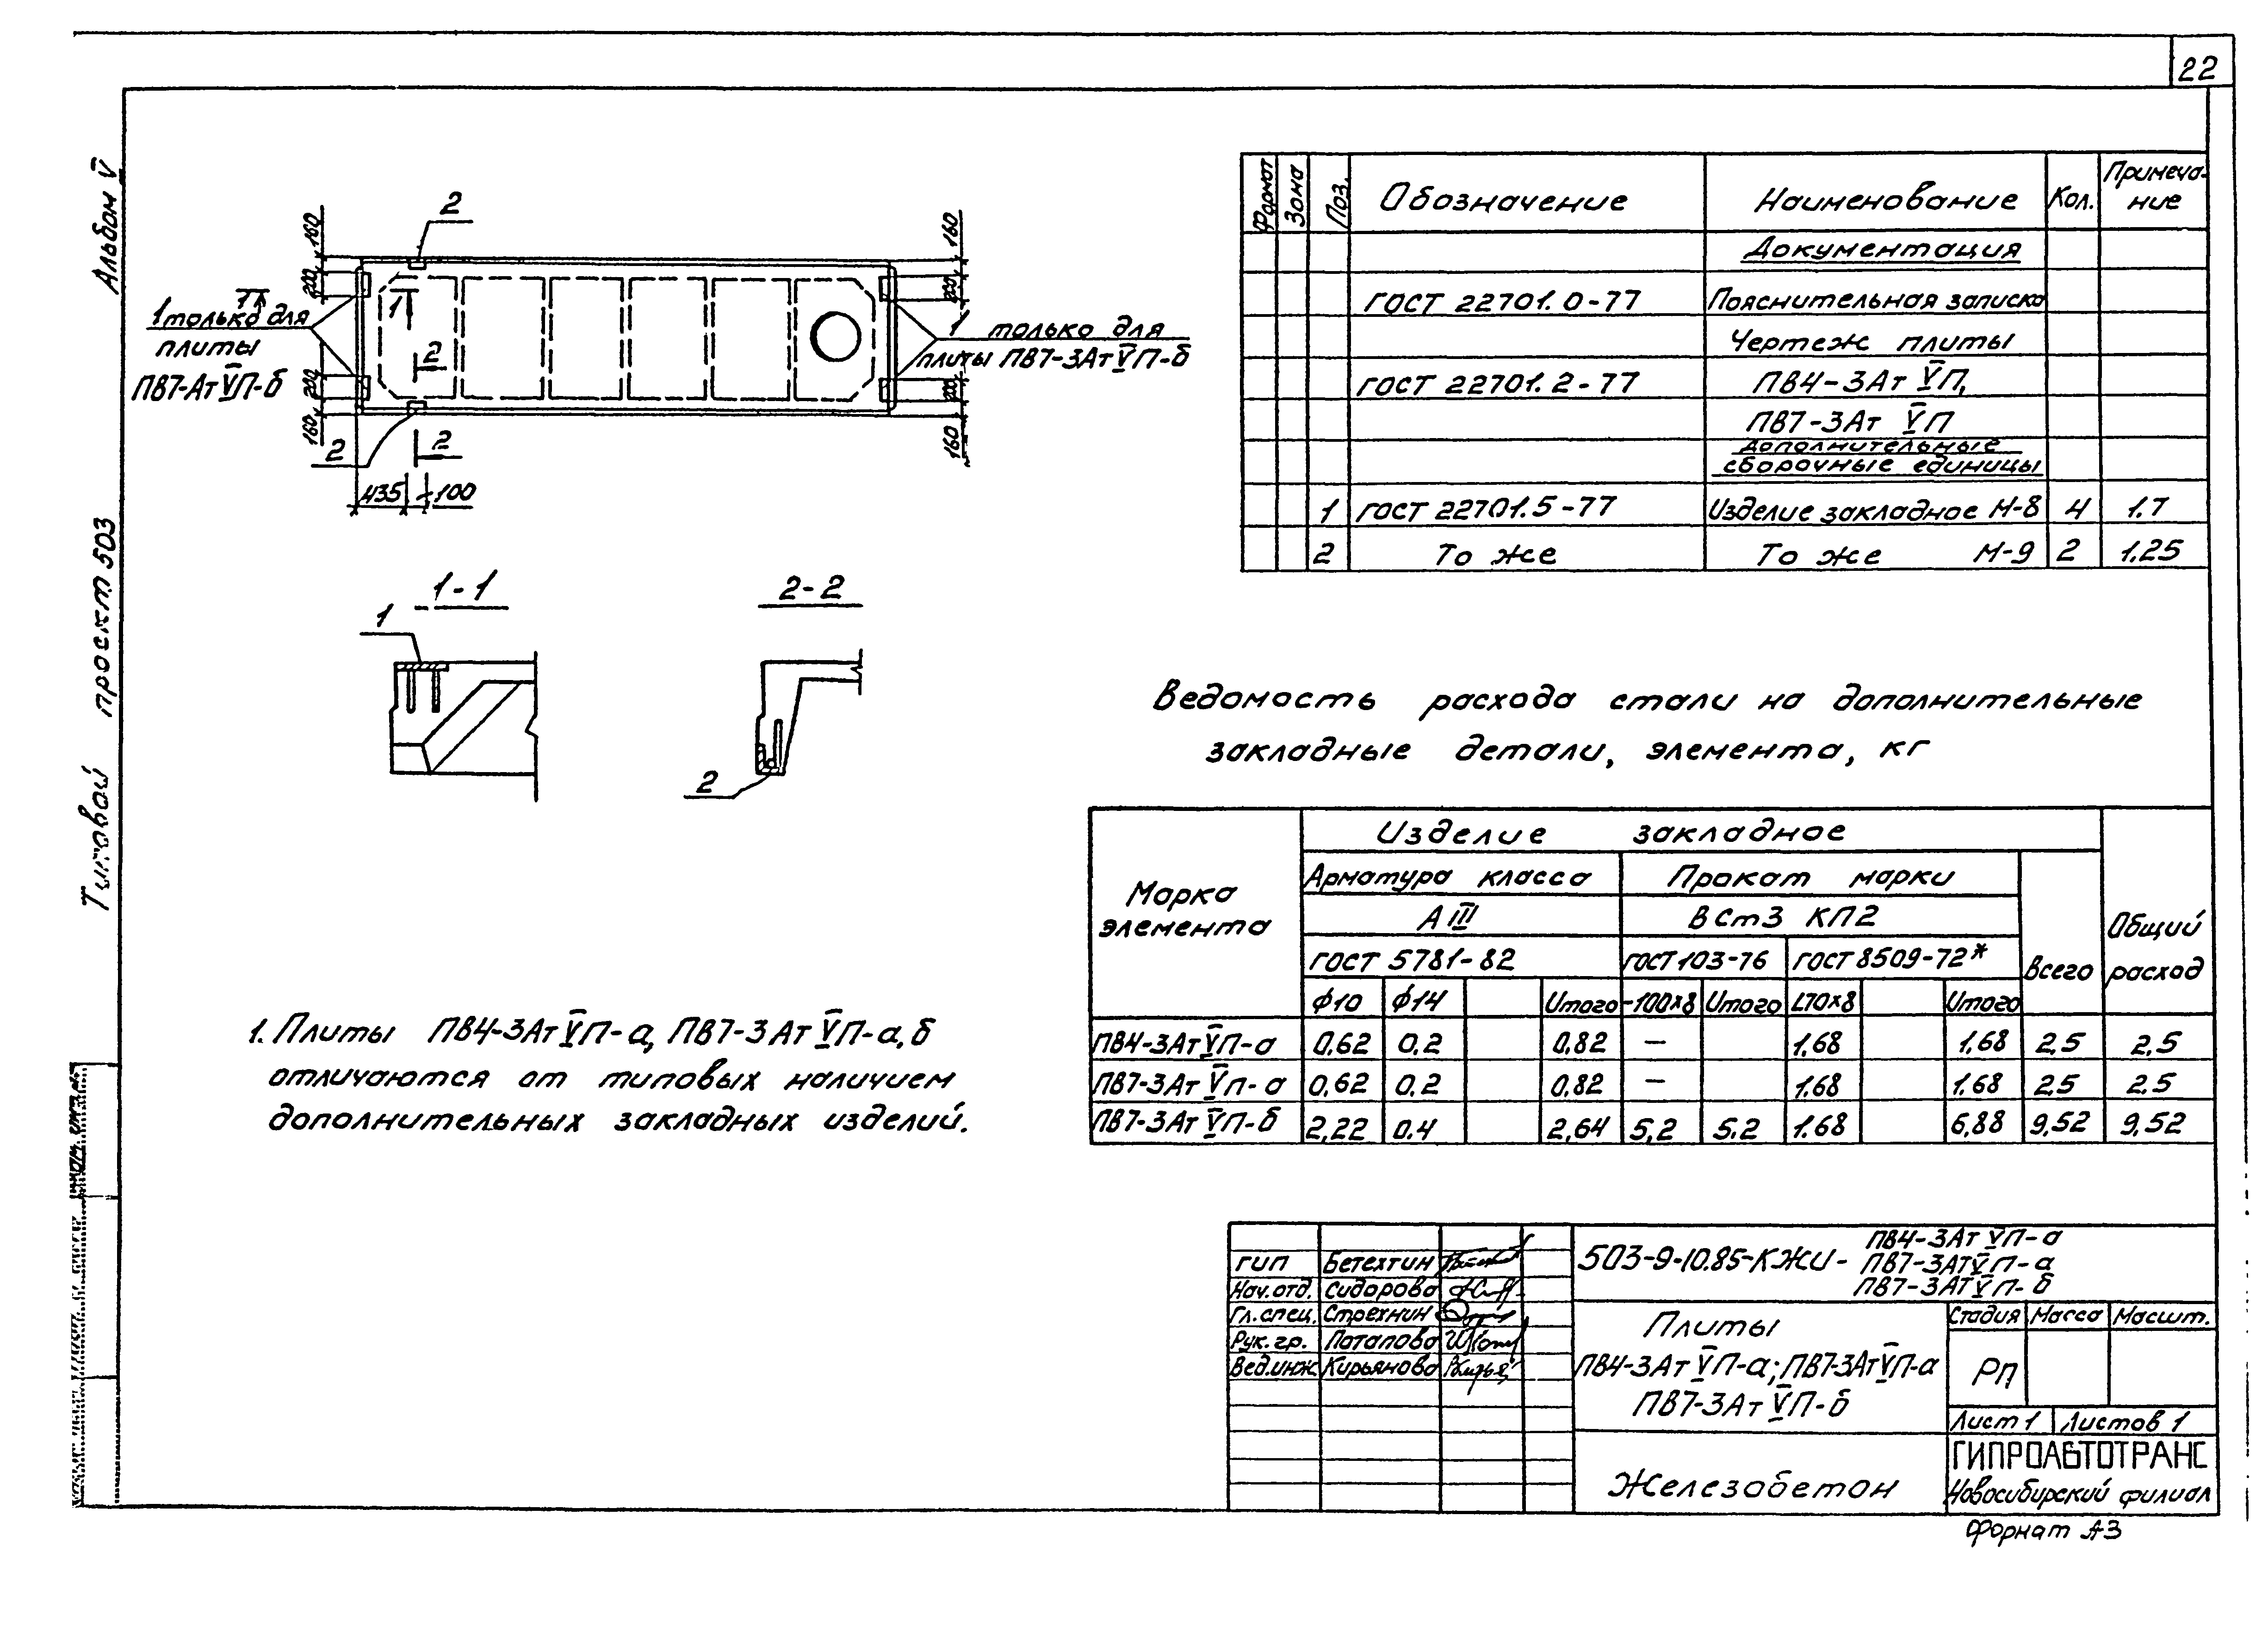 22
Альбом V
Типовой проект 503
2
160
200
1 только для
плиты
ПВ7-Ат V П-б
200
160
1
1
2
2
2
435
100
160
200
1 только для
плиты ПВ7-3Ат V П-б
200
160
1-1
1
2-2
2
1. Плиты ПВ4-3Ат V П-а, ПВ7-3Ат V П-а, б
отличаются от типовых наличием
дополнительных закладных изделий.
Формат Зона Поз. Обозначение Наименование Кол. Примеча-
ние
Документация
ГОСТ 22701.0-77 Пояснительная записка
Чертеж плиты
ГОСТ 22701.2-77 ПВ4-3Ат V П,
ПВ7-3Ат V П
Дополнительные
сборочные единицы
1 ГОСТ 22701.5-77 Изделие закладное М-8 4 1.7
2 То же То же М-9 2 1,25
Ведомость расхода стали на дополнительные
закладные детали, элемента, кг
Марка
элемента
Изделие закладное
Арматура класса Прокат марки
А III ВСт3 КП2
ГОСТ 5781-82 ГОСТ 103-76 ГОСТ 8509-72*
Всего
Общий
расход
ф10 ф14 Итого -100×8 Итого L70×8 Итого
ПВ4-3Ат V П-а 0,62 0.2 0,82 — 1,68 1,68 2,5 2,5
ПВ7-3Ат V П-а 0,62 0.2 0,82 — 1,68 1,68 2,5 2.5
ПВ7-3Ат V П-б 2,22 0.4 2,64 5,2 5.2 1.68 6,88 9,52 9,52
ГИП Бетехтин
Нач.отд. Сидорова
Гл.спец. Стрехнин
Рук.гр. Потапова
Вед.инж. Кирьянова
503-9-10.85-КЖИ-
ПВ4-3Ат V П-а
ПВ7-3Ат V П-а
ПВ7-3Ат V П-б
Плиты
ПВ4-3Ат V П-а; ПВ7-3Ат V П-а
ПВ7-3Ат V П-б
Стадия Масса Масшт.
РП
Лист 1 Листов 1
Железобетон
ГИПРОАВТОТРАНС
Новосибирский филиал
Формат А3